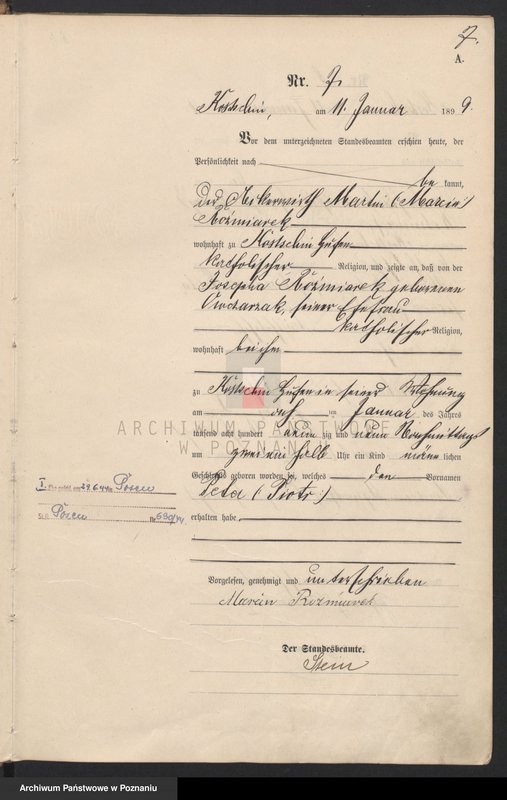 7.
A.
Nr. 7.
Kostschin, am 11. Januar 1899.
Vor dem unterzeichneten Standesbeamten erschien heute, der
Persönlichkeit nach
be kannt,
der Ackerwirth Martin (Marcin)
Koźmiarek
wohnhaft zu Kostschin Hufen
katholischer Religion, und zeigte an, daß von der
Josepha Koźmiarek geborenen
seiner Ehefrau
katholischer Religion,
wohnhaft bei ihm
zu Kostschin Hufen in seiner Wohnung
am ten Januar des Jahres
tausend acht hundert neun zig und neun Nachmittags
um ein halb Uhr ein Kind männ lichen
Geschlechts geboren worden sei, welches den Vornamen
Peter (Piotr)
erhalten habe.
I. 29.6.44 Posen
Posen Nr.
Vorgelesen, genehmigt und unterschrieben
Marcin
Der Standesbeamte.
Stein
ARCHIWUM PAŃSTWOWE
W POZNANIU
Archiwum Państwowe w Poznaniu